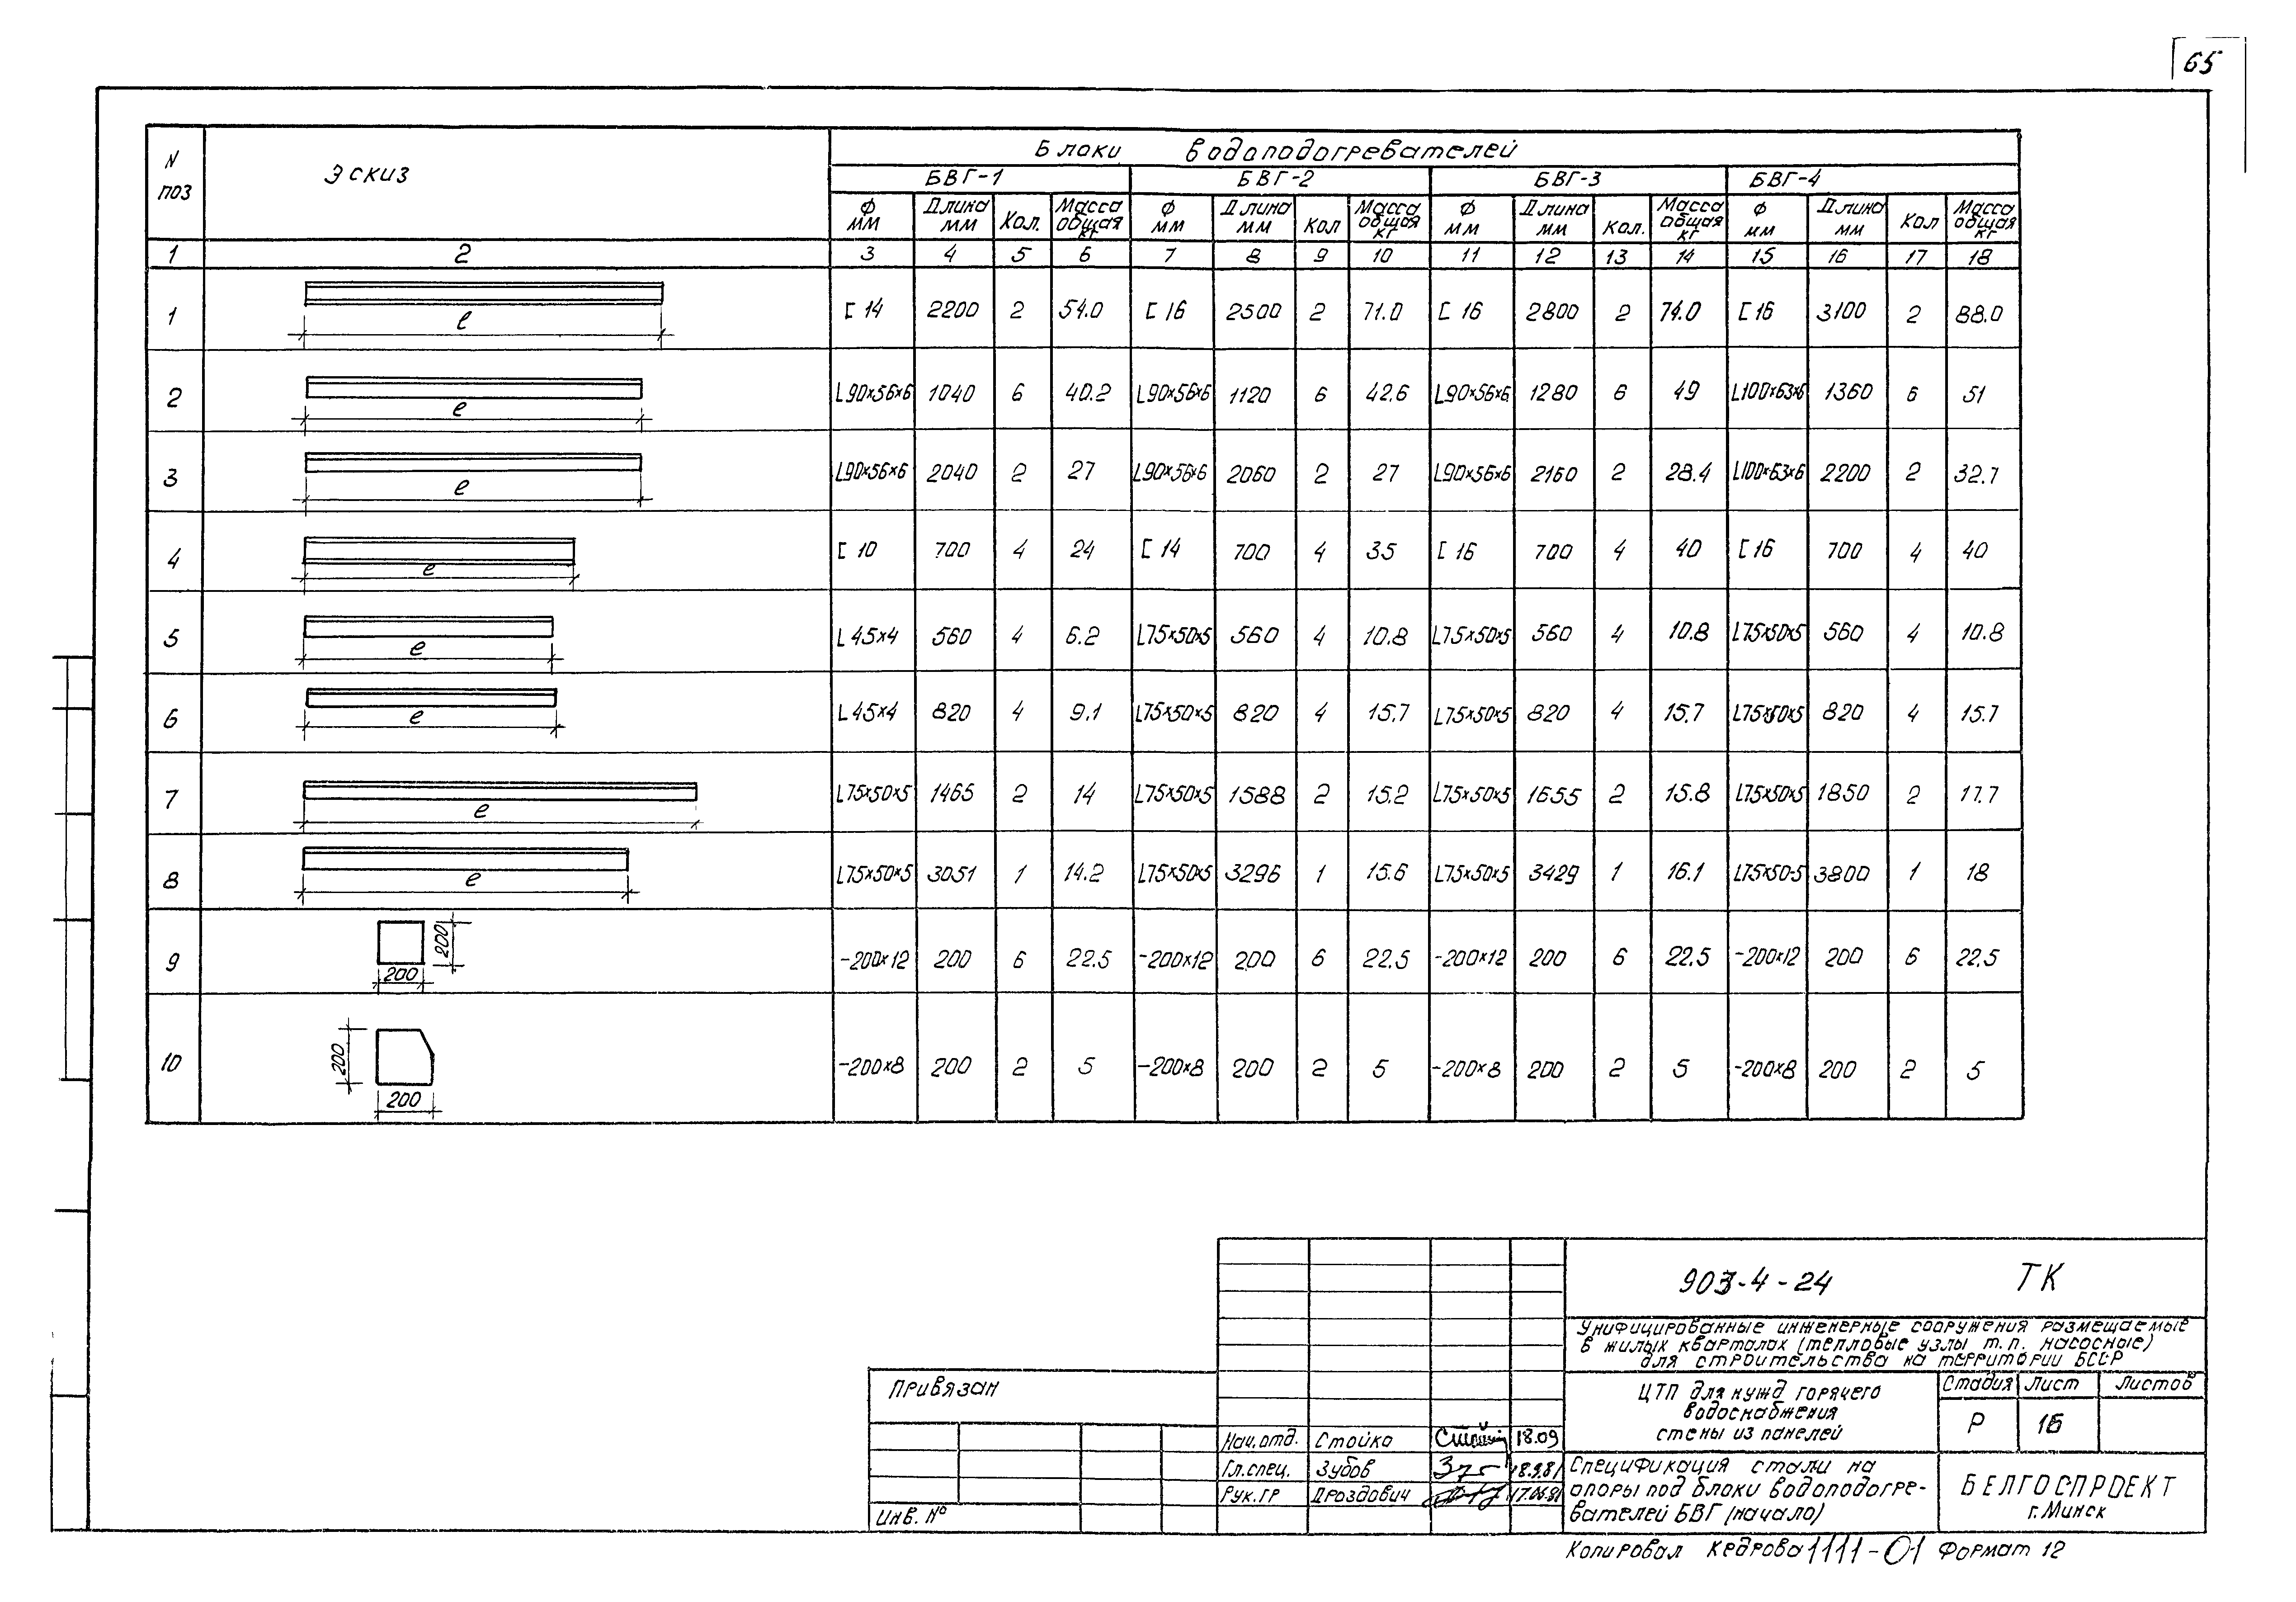 65
N поз Эскиз Блоки водоподогревателей
БВГ-1 БВГ-2 БВГ-3 БВГ-4
Ф мм Длина мм Кол. Масса общая кг Ф мм Длина мм Кол Масса общая кг Ф мм Длина мм Кол. Масса общая кг Ф мм Длина мм Кол Масса общая кг
1 2 3 4 5 6 7 8 9 10 11 12 13 14 15 16 17 18
1 ℓ [ 14 2200 2 54.0 [ 16 2500 2 71.0 [ 16 2800 2 74.0 [ 16 3100 2 88.0
2 ℓ L90×56×6 1040 6 40.2 L90×56×6 1120 6 42.6 L90×56×6 1280 6 49 L100×63×6 1360 6 51
3 ℓ L90×56×6 2040 2 27 L90×56×6 2060 2 27 L90×56×6 2160 2 28.4 L100×63×6 2200 2 32.7
4 ℓ [ 10 700 4 24 [ 14 700 4 35 [ 16 700 4 40 [ 16 700 4 40
5 ℓ L45×4 560 4 6.2 L75×50×5 560 4 10.8 L75×50×5 560 4 10.8 L75×50×5 560 4 10.8
6 ℓ L45×4 820 4 9.1 L75×50×5 820 4 15.7 L75×50×5 820 4 15.7 L75×50×5 820 4 15.7
7 ℓ L75×50×5 1465 2 14 L75×50×5 1588 2 15.2 L75×50×5 1655 2 15.8 L75×50×5 1850 2 17.7
8 ℓ L75×50×5 3051 1 14.2 L75×50×5 3296 1 15.6 L75×50×5 3429 1 16.1 L75×50×5 3800 1 18
9 200 200 -200×12 200 6 22.5 -200×12 200 6 22.5 -200×12 200 6 22.5 -200×12 200 6 22.5
10 200 200 -200×8 200 2 5 -200×8 200 2 5 -200×8 200 2 5 -200×8 200 2 5
903-4-24 ТК
Унифицированные инженерные сооружения размещаемые
в жилых кварталах (тепловые узлы т.п. насосные)
для строительства на территории БССР
Привязан
ЦТП для нужд горячего
водоснабжения
стены из панелей
Стадия Лист Листов
Р 16
Нач.отд. Стойко 18.09
Гл.спец. Зубов 18.9.81
Рук.гр Дроздович 17.06.81
Инв. №
Спецификация стали на
опоры под блоки водоподогре-
вателей БВГ (начало)
БЕЛГОСПРОЕКТ
г. Минск
Копировал Кедрова 1111-01 Формат 12